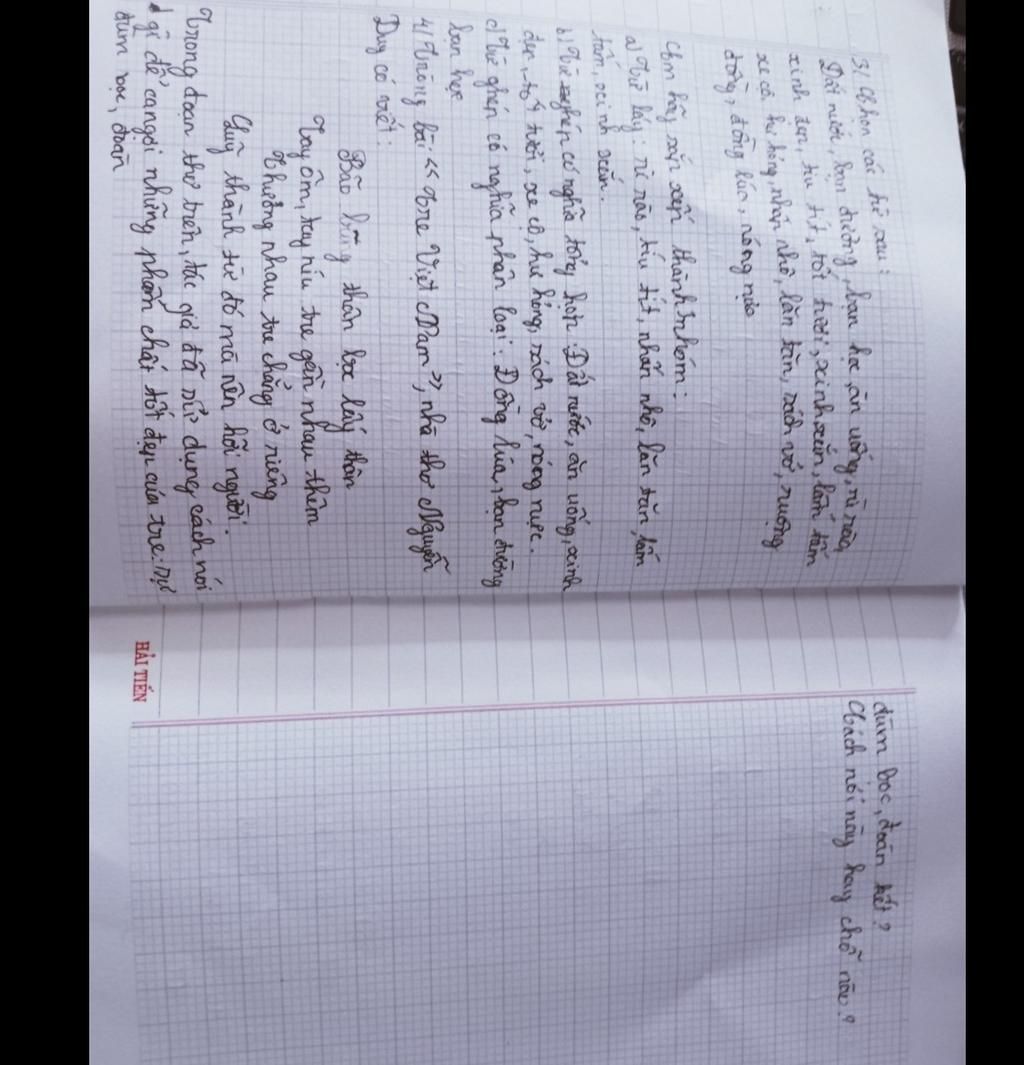 3/ Cho các từ sau:
Đất nước, bạn đường, bạn học, ăn uống, rì rào,
xinh đẹp, tíu tít, tốt tươi, xinh xắn, lấm tấm
xe cộ, hư hỏng, nhấp nhô, lăn tăn, sách vở, ruộng
đồng, đồng lúa, nóng nực
Em hãy sắp xếp thành nhóm:
a) Từ láy: rì rào, tíu tít, nhấp nhô, lăn tăn, lấm
tấm, xinh xắn.
b) Từ ghép có nghĩa tổng hợp: Đất nước, ăn uống, xinh
đẹp, tốt tươi, xe cộ, hư hỏng, sách vở, nóng nực.
c) Từ ghép có nghĩa phân loại: Đồng lúa, bạn đường
bạn học
4) Trong bài << Tre Việt Nam >>, nhà thơ Nguyễn
Duy có viết:
Bão bùng thân bọc lấy thân
Tay ôm, tay níu tre gần nhau thêm
Thương nhau tre chẳng ở riêng
Lũy thành từ đó mà nên hỡi người.
Trong đoạn thơ trên, tác giả đã sử dụng cách nói
gì để ca ngợi những phẩm chất tốt đẹp của tre: sự
đùm bọc, đoàn
HẢI TIẾN
đùm bọc, đoàn kết?
Cách nói này hay chỗ nào?